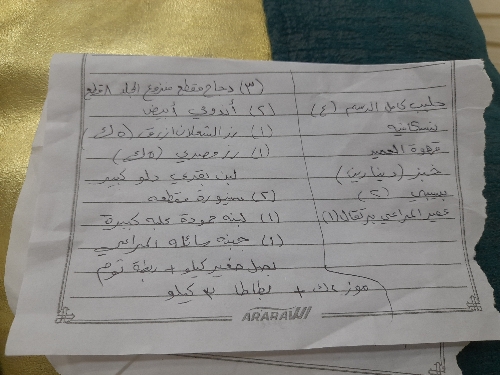 (٣) دجاج مقطع منزوع الجلد ٨ قطع
(٢) أندومي أبيض
(١) رز الشعلان ازرق (٥ك)
(١) رز مصري (٥ك)
لبن نقدي دلو كبير
(٢) مقطعه
(١) لبنه علبه كبيرة
(١) جبنه سائله المراعي
بصل صغير كيلو + ربطة توم
موز + بطاطا ٣ كيلو
حليب كامل الدسم (٤)
نسكافيه
قهوة العميد
خبز (دينارين)
بيبسي (٢)
عصير المراعي برتقال (١)
ARARAWI